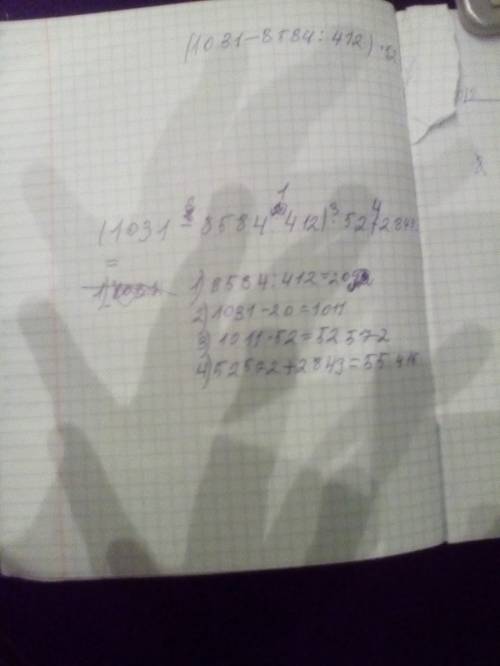 (1031-8584:412)·52
(1031-8584:412)·52+2843
=
1)8584:412=20
2)1031-20=1011
3)1011·52=52572
4)52572+2843=55415